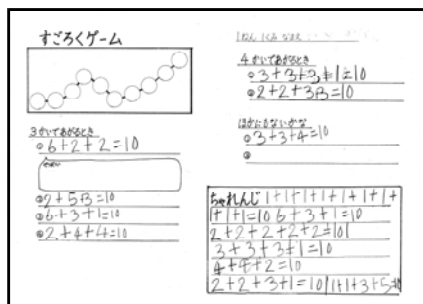 すごろくゲーム
3かいであがるとき
① 6+2+2=10
② 2+5+3=10
③ 6+3+1=10
④ 2+4+4=10
1ねん 1くみ なまえ
4かいであがるとき
① 3+3+3+1=10
② 2+2+3+3=10
ほかにもないかな
① 3+3+4=10
②
ちゃれんじ 1+1+1+1+1+1+1+
1+1+1=10 6+3+1=10
2+2+2+2+2=10
3+3+3+1=10
4+4+2=10
2+2+3+1=10 1+1+3+5=10